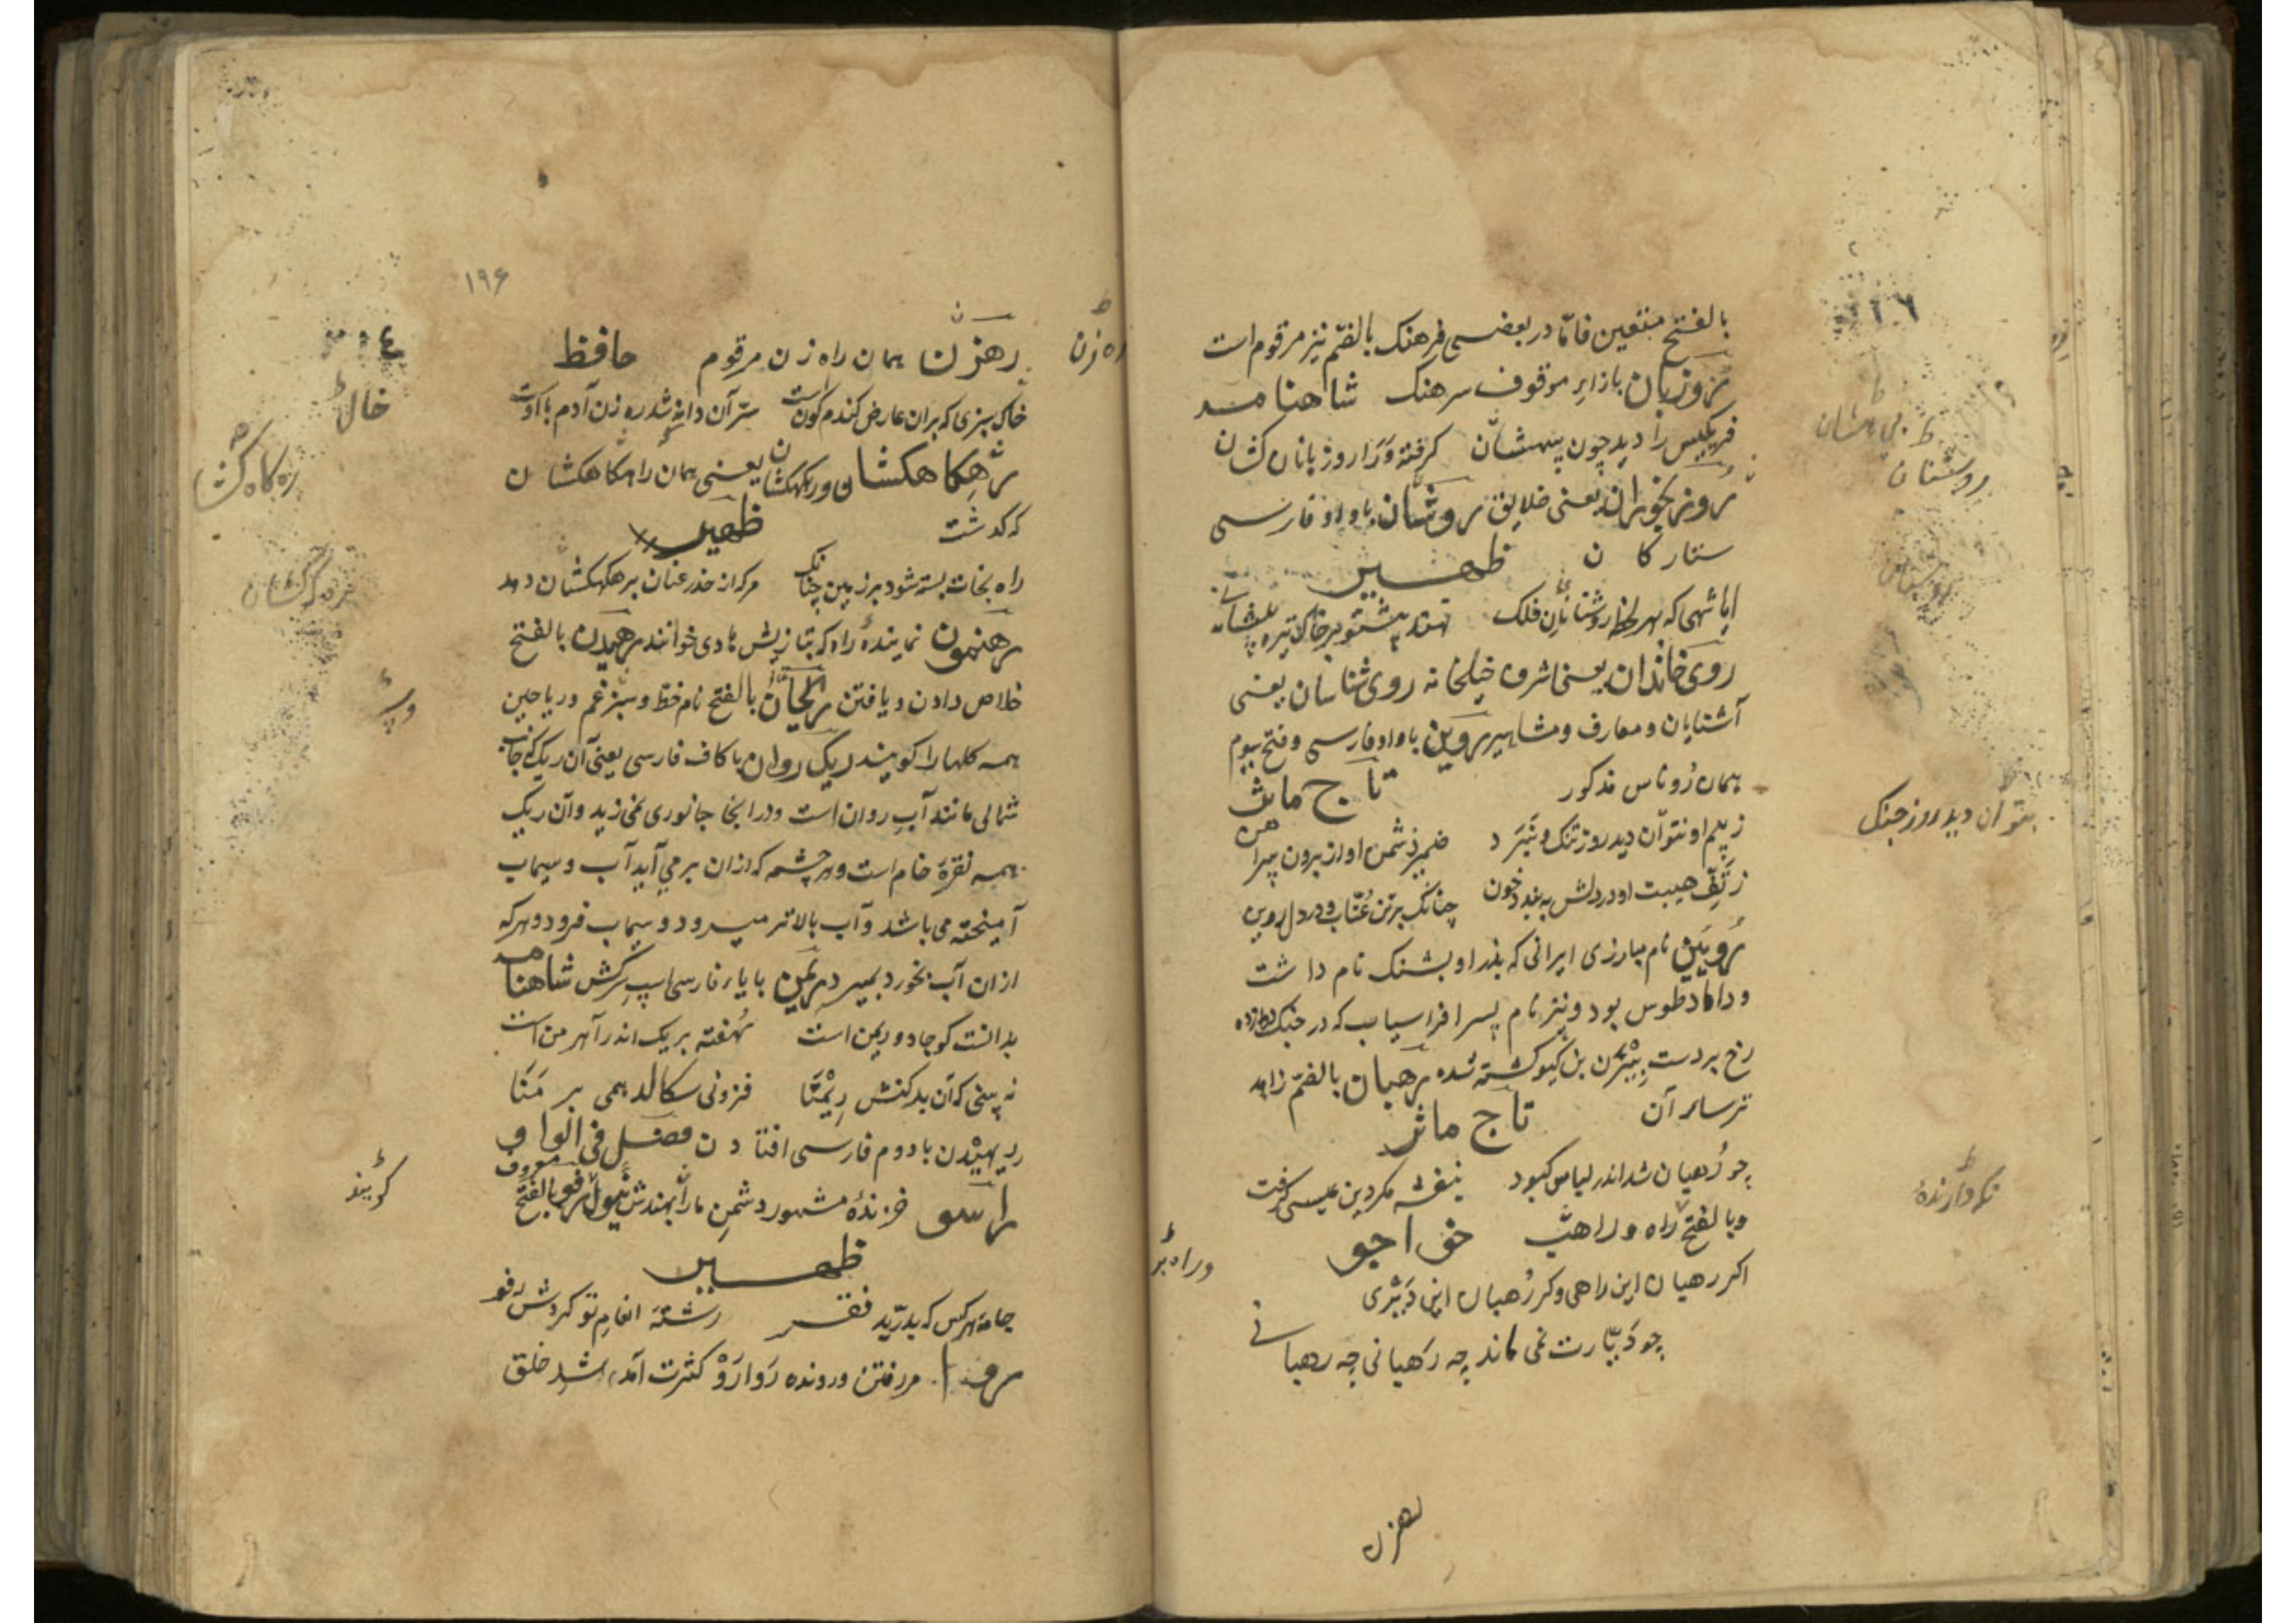 بالفتح منتعین فامّا در بعضی فرهنک بالضّم نیز مرقوم است
روزبان بازاء موقوف سرهنک شاهنامه
فریکیس را دید چون بیهشان کرفته ورا روزبانان کشان
روزیخوران یعنی خلایق روشنان باواو فارسی
ستارکان ظهیر
ایا شهی که بهر لحظه روشنان فلک نهند پیشتو بر خاک تیره پیشانی
روی خاندان یعنی اشرف خیلخانه روی شناسان یعنی
آشنایان و معارف و مشاهیر روین باواو فارسی و فتح سیوم
همان روناس مذکور تاج ماثر
ز بیم او نتوان دید روز تنک و نبرد ضمیر دشمن او از برون پیراهن
ز تفّ هیبت او در دلش به بندد خون چنانک بر تن عنّاب و در دل روین
رویین نام مبارزی ایرانی که پدر او پشنک نام داشت
و داماد طوس بود و نیز نام پسر افراسیاب که در جنک دوازده
رخ بر دست بیژن بن کیو کشته شده رهبان بالضّم زاهد
ترسا آن تاج ماثر
چو رهبان شد اندر لباس کبود بنفشه مکر دین عیسی کرفت
و بالفتح راه و راهب خواجو
اکر رهبان این راهی وکر رهبان این دیری
چو دیّارت نمی ماند چه رهبانی چه رهبانی
رهزن
بی هشان
روشنان
بتوان دید روز جنک
نکهدارنده
و راه بر
۱۹۶
رهزن همان راه زن مرقوم حافظ
خال سبزی که بران عارض کندم کونست سرّ آن دانه که شد ره زن آدم با اوست
رهکاهکشان و رهکهکشان یعنی همان راه کاهکشان
که کدشت ظهیر
راه نجات بسته شود بر زمین چنانک مرک از حذر عنان بره کهکشان دهد
رهنمون نماینده راه که بتازیش هادی خوانند رهیدن بالفتح
خلاص دادن و یافتن ریحان بالفتح نام خط و سبزغم و ریاحین
همه کلها را کویند ریک روان با کاف فارسی یعنی آن ریک که جانب
شمالی مانند آب روان است و در انجا جانوری نمی زید و آن ریک
همه نقره خام است و هر چشمه که ازان بر می آید آب و سیماب
آمیخته می باشد و آب بالاتر میرود و سیماب فرود و هر که
ازان آب بخورد بمیرد ریمن بایاء فارسی اسپ سرکش شاهنامه
بدانست کو جادو ریمن است نهفته بریک اندر آهرمن است
نه بینی که آن بدکنش ریمنا فزونی سکالد همی بر منا
ریهیدن بادوم فارسی افتادن فصل فی الواو
راسو خزنده مشهور دشمن مار بهندش نیول رفو بالفتح معروف
ظهیر
جامه هر کس که بدرّید فقر رشته انعام تو کردش رفو
روارو رفتن و رونده روارو کثرت آمد شد خلق
راه زن
خال
ره کاه کشان
ره که کشان
کویند